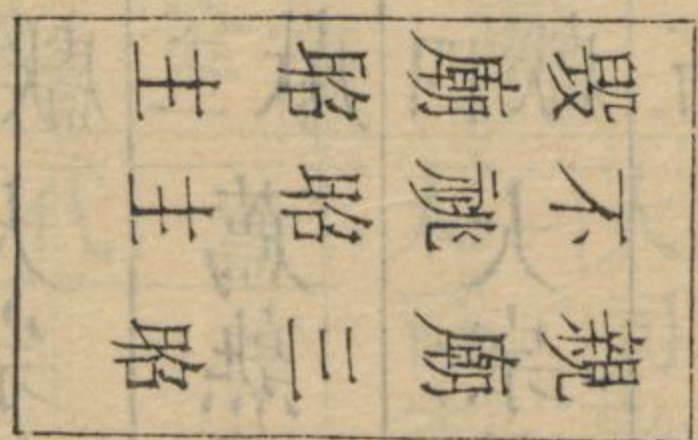 親廟三昭
不祧昭主
毀廟昭主